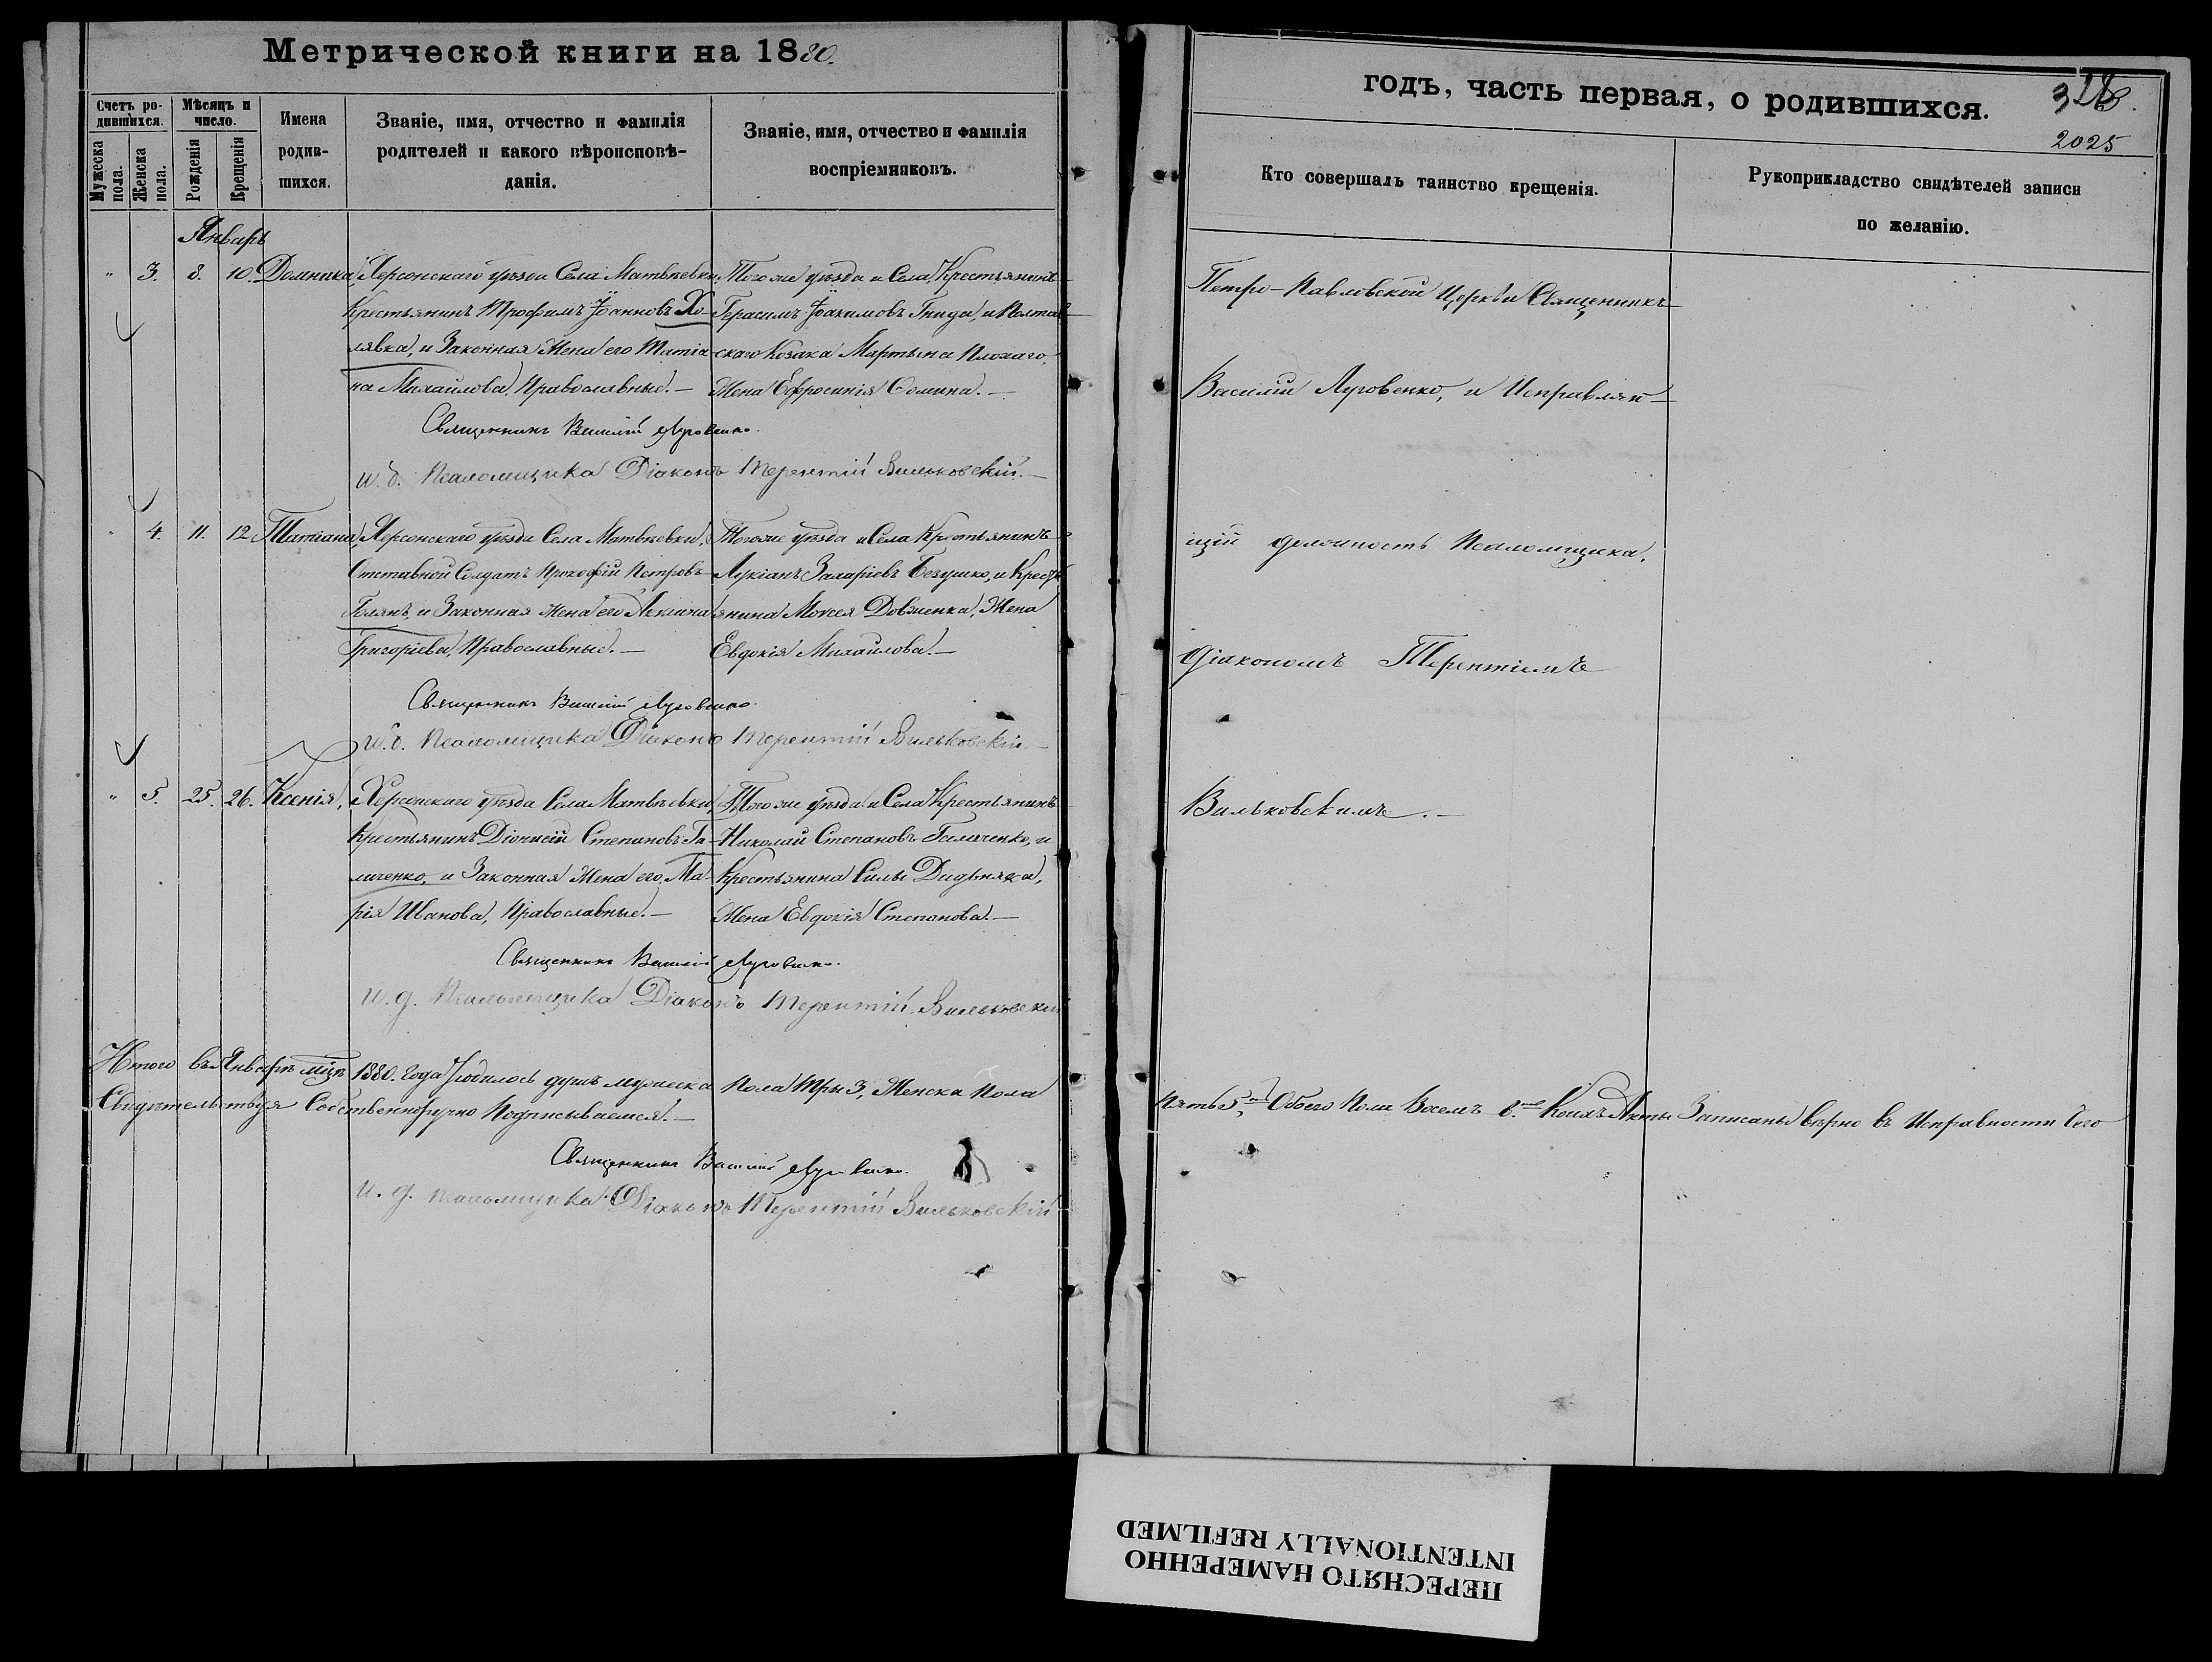 Метрической книги на 1880.
Счетъ ро-
дившихся.
Мужеска
пола.
Женска
пола.
Мѣсяцъ и
число.
Рожденія
Крещенія
Имена
родив-
шихся.
Званіе, имя, отчество и фамилія
родителей и какого вѣроисповѣ-
данія.
Званіе, имя, отчество и фамилія
воспріемниковъ.
Январь
" 3. 8. 10. Домника,
Херсонскаго уѣзда Села Матвѣевки,
Крестьянинъ Трофимъ Іоанновъ Хо-
лявка, и Законная Жена его Татіа-
на Михайлова, Православные.—
Того же уѣзда и Села, Крестьянинъ
Герасимъ Іоакимовъ Гнида, и Полтав-
скаго Козака Мартына Плохаго,
Жена Ефросинія Фомина.—
Священникъ Василій Луговенко.
и. д. Псаломщика Діаконъ Терентій Вильковскій.—
" 4. 11. 12. Татіана,
Херсонскаго уѣзда Села Матвѣевки,
Отставной Солдатъ Прокофій Петровъ
Голянъ, и Законная Жена его Акилина
Григоріева, Православные.—
Того же уѣзда и Села Крестьянинъ
Лукіанъ Захаріевъ Безушко, и Кресть-
янина Моисея Довженка, Жена
Евдокія Михайлова.—
Священникъ Василій Луговенко.
и. д. Псаломщика Діаконъ Терентій Вильковскій.—
" 5. 25. 26. Ксенія,
Херсонскаго уѣзда Села Матвѣевки,
Крестьянинъ Діонисій Степановъ Га-
личенко, и Законная Жена его, Ма-
рія Иванова, Православные.—
Того же уѣзда и Села Крестьянинъ
Николай Степановъ Галиченко, и
Крестьянина Силы Дидыняка,
Жена Евдокія Степанова.—
Священникъ Василій Луговенко.
и. д. Псаломщика Діаконъ Терентій Вильковскій
Итого въ Январѣ мцѣ 1880. года родилось душъ мужеска пола три 3, Женска пола
Свидѣтельствуя Собственноручно Подписываемся.—
Священникъ Василій Луговенко.
и. д. Псаломщика Діаконъ Терентій Вильковскій
годъ, часть первая, о родившихся.
328.
2025
Кто совершалъ таинство крещенія.
Рукоприкладство свидѣтелей записи
по желанію.
Петро-Павловской Церкви Священникъ
Василій Луговенко, и Исправляю-
щій должность Псаломщика,
Діакономъ Терентіемъ
Вильковскимъ.—
Пять 5, Обоего Пола Восемь 8. Коихъ Акты Записаны вѣрно въ Исправности Чего
ПЕРЕСНЯТО НАМЕРЕННО
INTENTIONALLY REFILMED